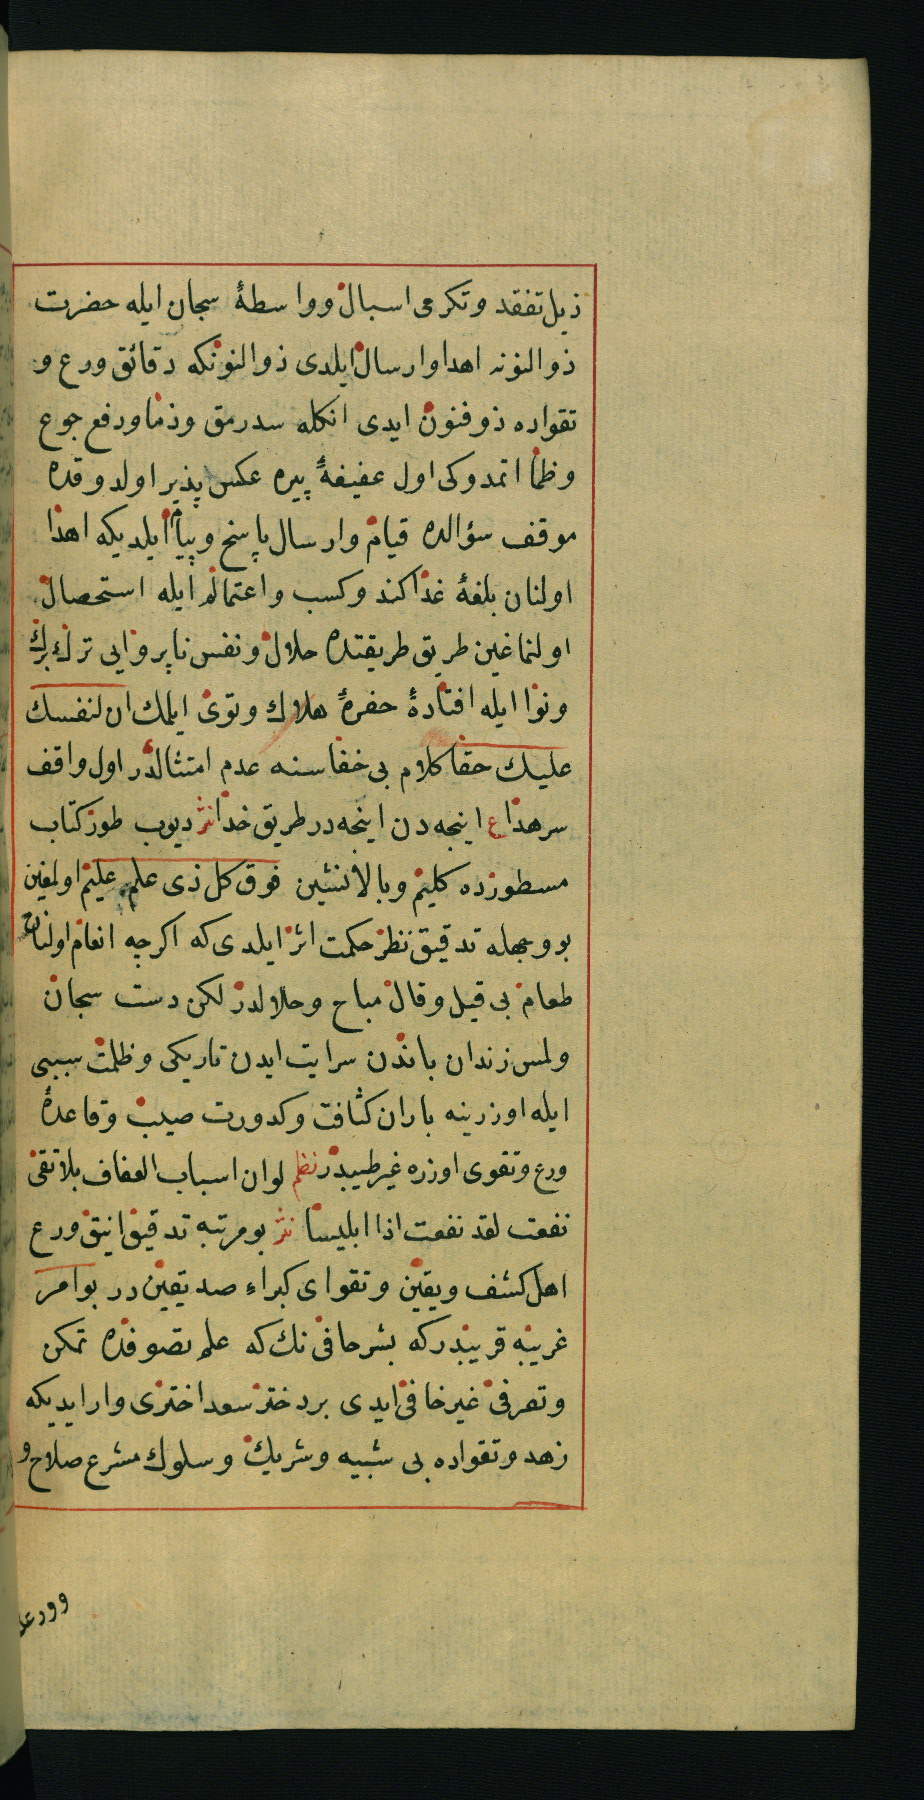 ذيل تفقد وتكرمى اسبال وواسطهٔ سجان ايله حضرت
ذوالنونه اهدا وارسال ايلدى ذوالنونكه دقائق ورع و
تقواده ذوفنون ايدى انكله سدرمق وذما ورفع جوع
وظما اتمدوكى اول عفيفهٔ پيره عكس پذير اولدوقده
موقف سؤالده قيام وارسال پاسخ وپيام ايلديكه اهدا
اولنان بلغهٔ غذا كند وكسب واعتمالم ايله استحصال
اولنماغين طريق طريقتده حلال ونفس ناپروايى ترك برك
ونوا ايله افتادهٔ حفرهٔ هلاك وتوى ايلمك ان لنفسك
عليك حقا كلام بى خفاسنه عدم امتثالدر اول واقف
سرهدا ع اينجه دن اينجه در طريق خدا نثر ديوب طور كتاب
مسطورده كليم وبالانشين فوق كل ذى علم عليم اولمغين
بووجهله تدقيق نظر حكمت اثر ايلدى كه اكرچه انعام اولنان
طعام بى قيل وقال مباح وحلالدر لكن دست سجان
ولمس زندان باندن سرايت ايدن تاريكى وظلمت سببى
ايله اوزرينه باران كثافت وكدورت صيب وقاعدهٔ
ورع وتقوى اوزره غير طيبدر نظم لوان اسباب العفاف بلاتقى
نفعت لقد نفعت اذا ابليسا نثر بومرتبه تدقيق انيق ورع
اهل كشف ويقين وتقواى كبراء صديقين در بوامر
غريبه قريبدركه بشرحافى نك كه علم تصوفده تمكن
وتصرفى غير خافى ايدى بر دختر سعد اخترى وار ايديكه
زهد وتقواده بى شبيه وشريك وسلوك مشرع صلاح و
وورعد